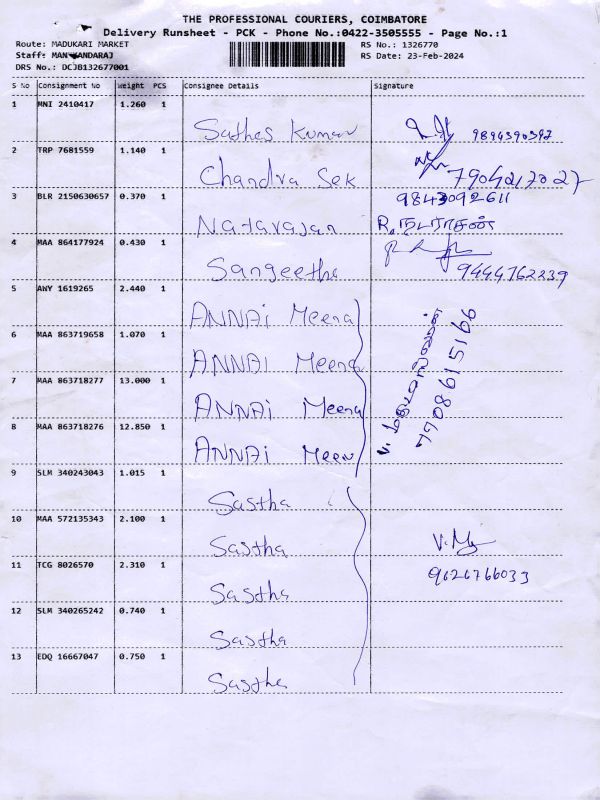 THE PROFESSIONAL COURIERS, COIMBATORE
Delivery Runsheet - PCK - Phone No.:0422-3505555 - Page No.:1
Route: MADUKARI MARKET RS No.: 1326770
Staff: RS Date: 23-Feb-2024
DRS No.: DCJB132677001
S No Consignment No Weight PCS Consignee Details Signature
1 MNI 2410417 1.260 1
Sathes Kumar 9894390397
2 TRP 7681559 1.140 1
Chandra Sek 7904217027
3 BLR 2150630657 0.370 1 9843092611
Natarajan R.நடராசன்
4 MAA 864177924 0.430 1
Sangeetha 9444762239
5 AWY 1619265 2.440 1
ANNAi Meena
6 MAA 863719658 1.070 1
ANNAi Meena
7 MAA 863718277 13.000 1
ANNAi Meena 7708615166
8 MAA 863718276 12.850 1
ANNAi Meen
9 SLM 340243043 1.015 1
Sastha
10 MAA 572135343 2.100 1
Sastha
11 TCG 8026570 2.310 1 9626766033
Sastha
12 SLM 340265242 0.740 1
Sastha
13 EDQ 16667047 0.750 1
Sastha